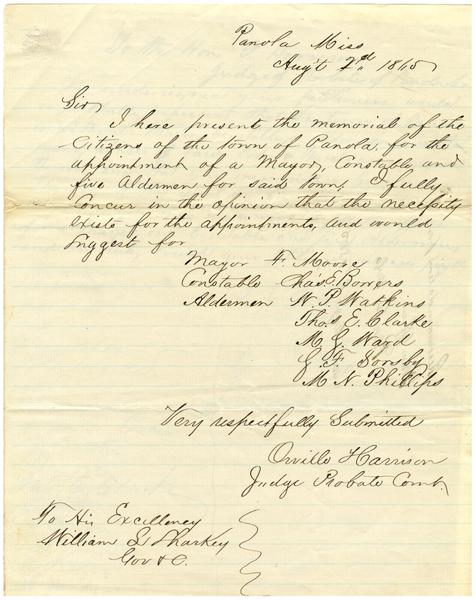 Panola Miss
Aug't 2nd 1865
Sir
I here present the memorial of the
Citizens of the town of Panola, for the
appointment of a Mayor, Constable and
five Aldermen for said town. I fully
Concur in the opinion that the necessity
exists for the appointments, and would
suggest for
Mayor F. Moore
Constable Chas E. Bowers
Aldermen W. P. Watkins
Thos E. Clarke
M. G. Ward
G. F. Sorsby
M. N. Phillips
Very respectfully Submitted
Orville Harrison
Judge Probate Court
To His Excellency
William L Sharkey
Gov &C.